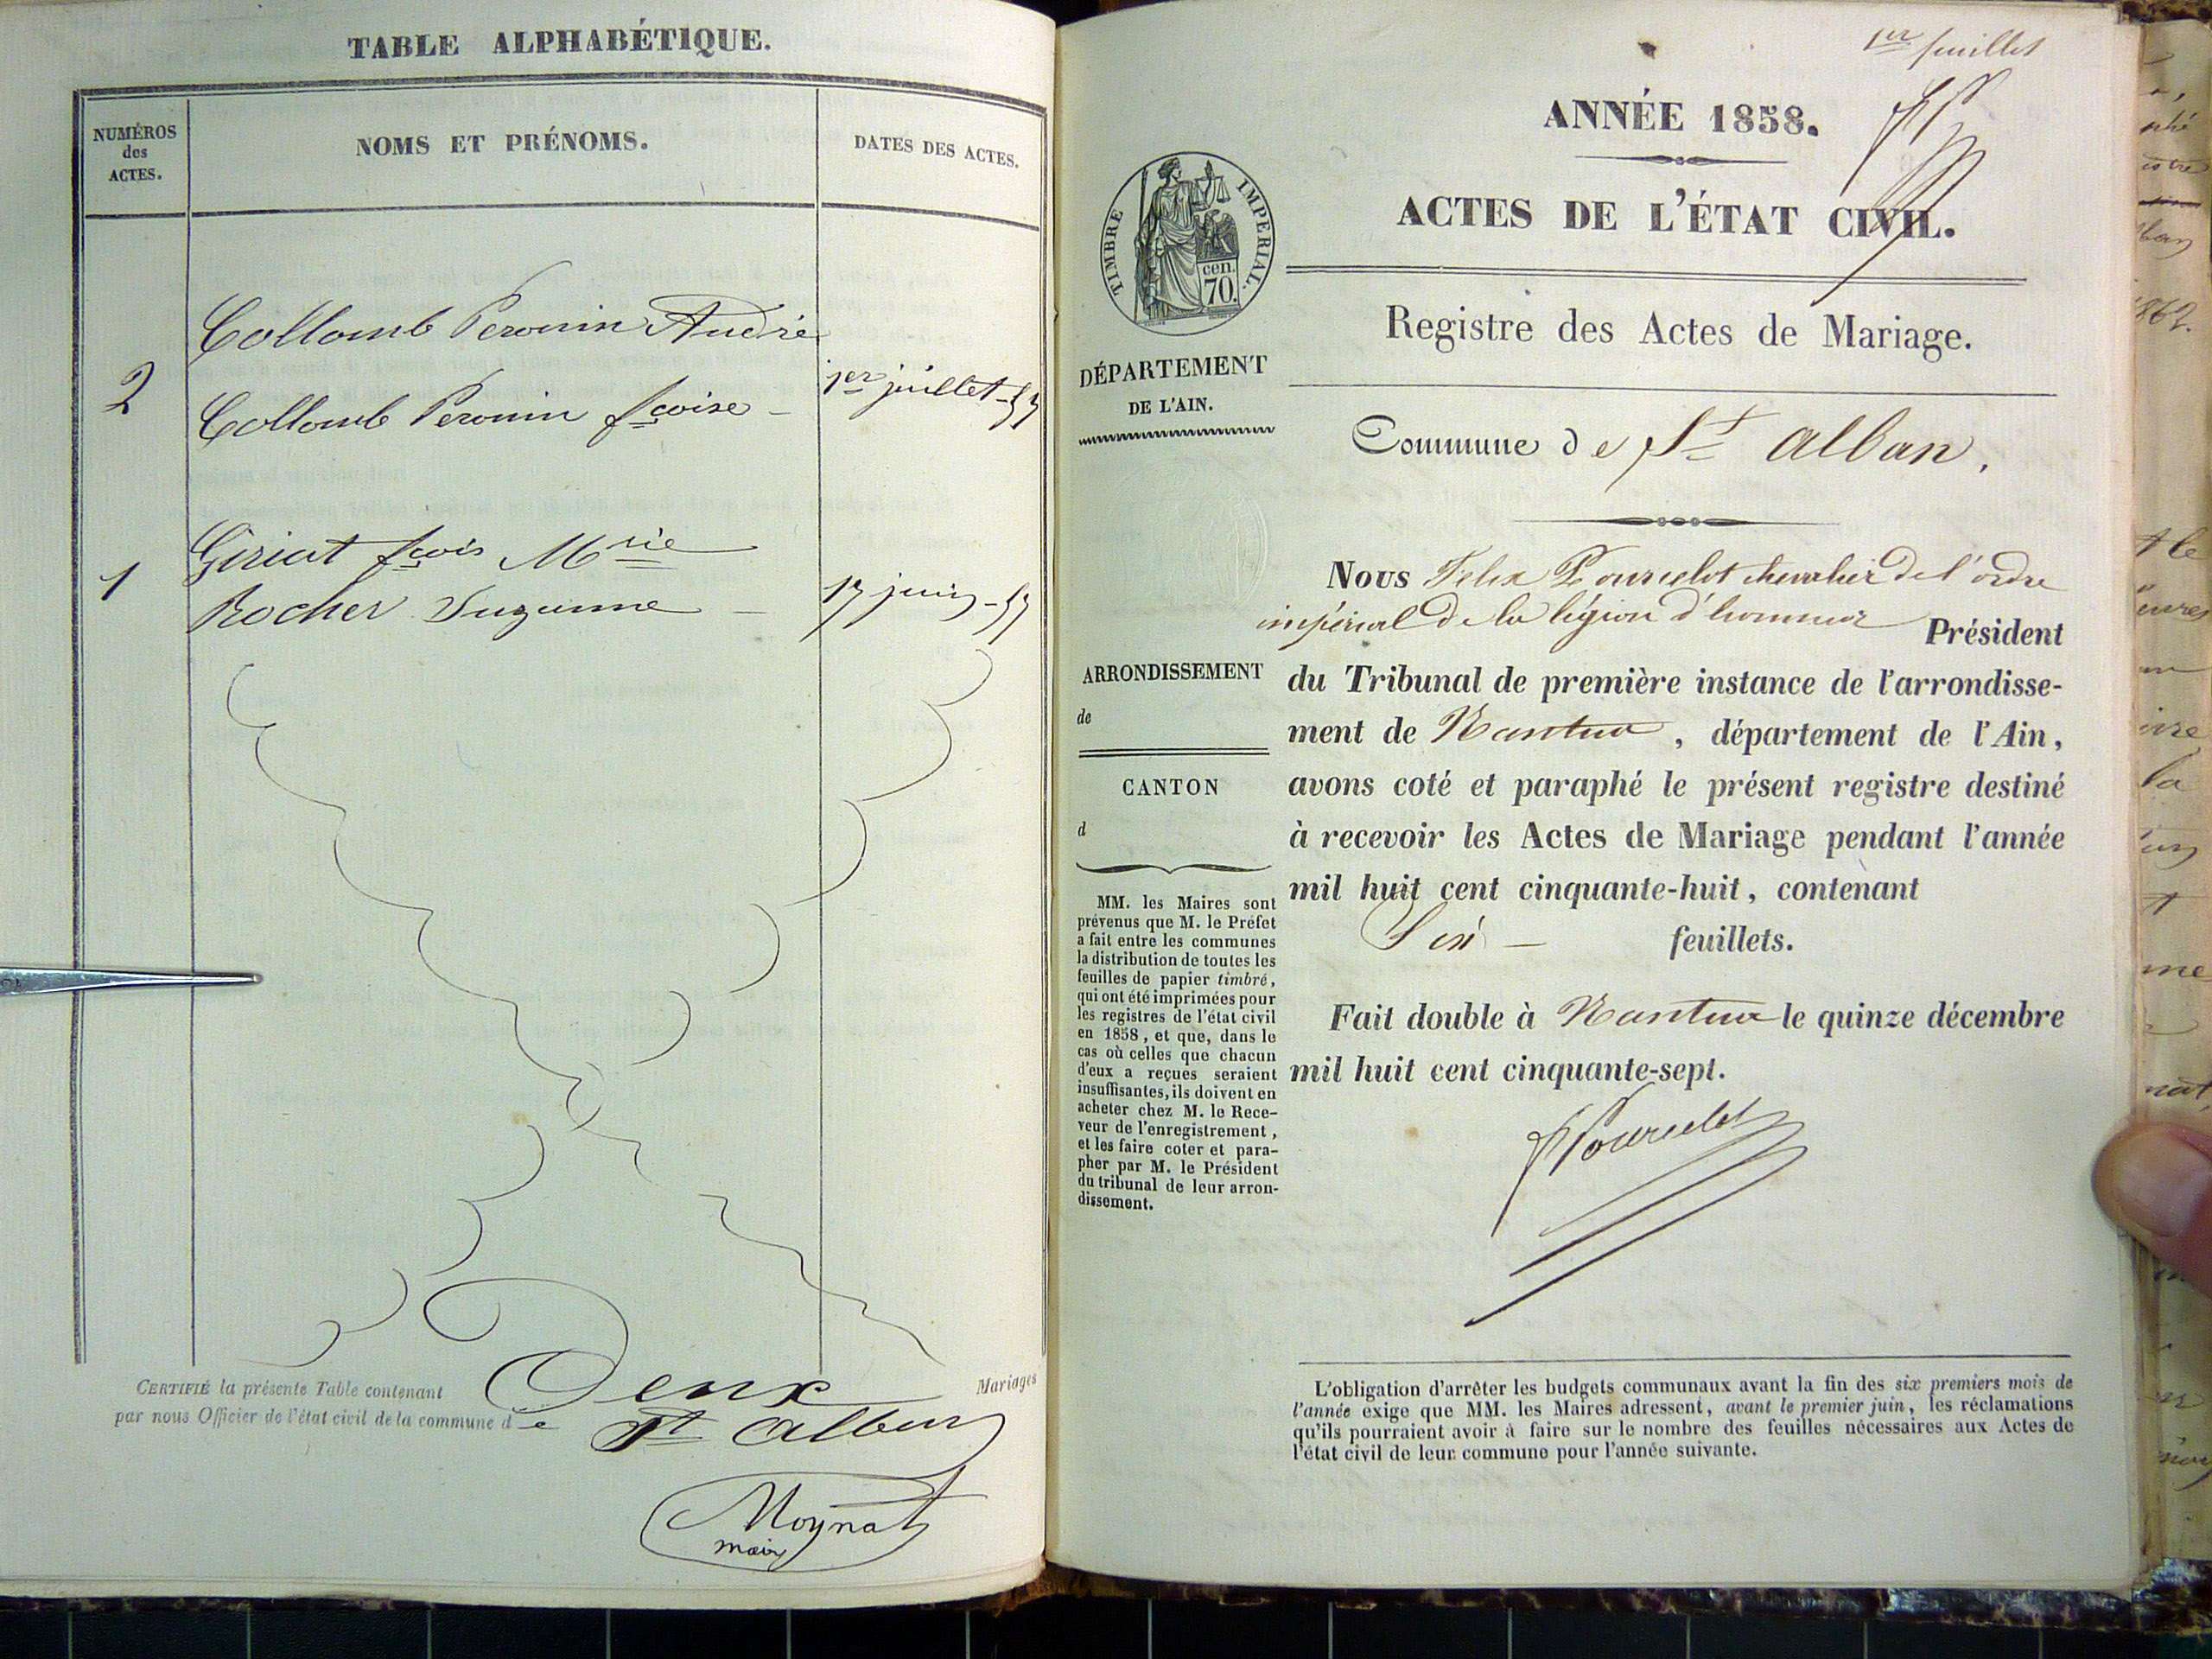 TABLE ALPHABÉTIQUE.
NUMÉROS
des
ACTES.
NOMS ET PRÉNOMS.
DATES DES ACTES.
Collomb Peronin André
2
Collomb Peronin fçoise -
1er juillet - 57
Giriat fçois Mrie
1
Rocher Suzanne -
17 juin - 57
CERTIFIÉ la présente Table contenant Deux Mariages
par nous Officier de l'état civil de la commune de St Alban
Moynat
maire
1er feuillet
ANNÉE 1858.
ACTES DE L'ÉTAT CIVIL.
TIMBRE IMPÉRIAL.
cen.
70.
Registre des Actes de Mariage.
DÉPARTEMENT
DE L'AIN.
Commune de St Alban.
Nous Felix Pourcelot chevalier de l'ordre
impérial de la légion d'honneur Président
du Tribunal de première instance de l'arrondisse-
ment de Nantua, département de l'Ain,
avons coté et paraphé le présent registre destiné
à recevoir les Actes de Mariage pendant l'année
mil huit cent cinquante-huit, contenant
Six - feuillets.
Fait double à Nantua le quinze décembre
mil huit cent cinquante-sept.
FPourcelot
ARRONDISSEMENT
de
CANTON
d
MM. les Maires sont
prévenus que M. le Préfet
a fait entre les communes
la distribution de toutes les
feuilles de papier timbré,
qui ont été imprimées pour
les registres de l'état civil
en 1858, et que, dans le
cas où celles que chacun
d'eux a reçues seraient
insuffisantes, ils doivent en
acheter chez M. le Rece-
veur de l'enregistrement,
et les faire coter et para-
pher par M. le Président
du tribunal de leur arron-
dissement.
L'obligation d'arrêter les budgets communaux avant la fin des six premiers mois de
l'année exige que MM. les Maires adressent, avant le premier juin, les réclamations
qu'ils pourraient avoir à faire sur le nombre des feuilles nécessaires aux Actes de
l'état civil de leur commune pour l'année suivante.